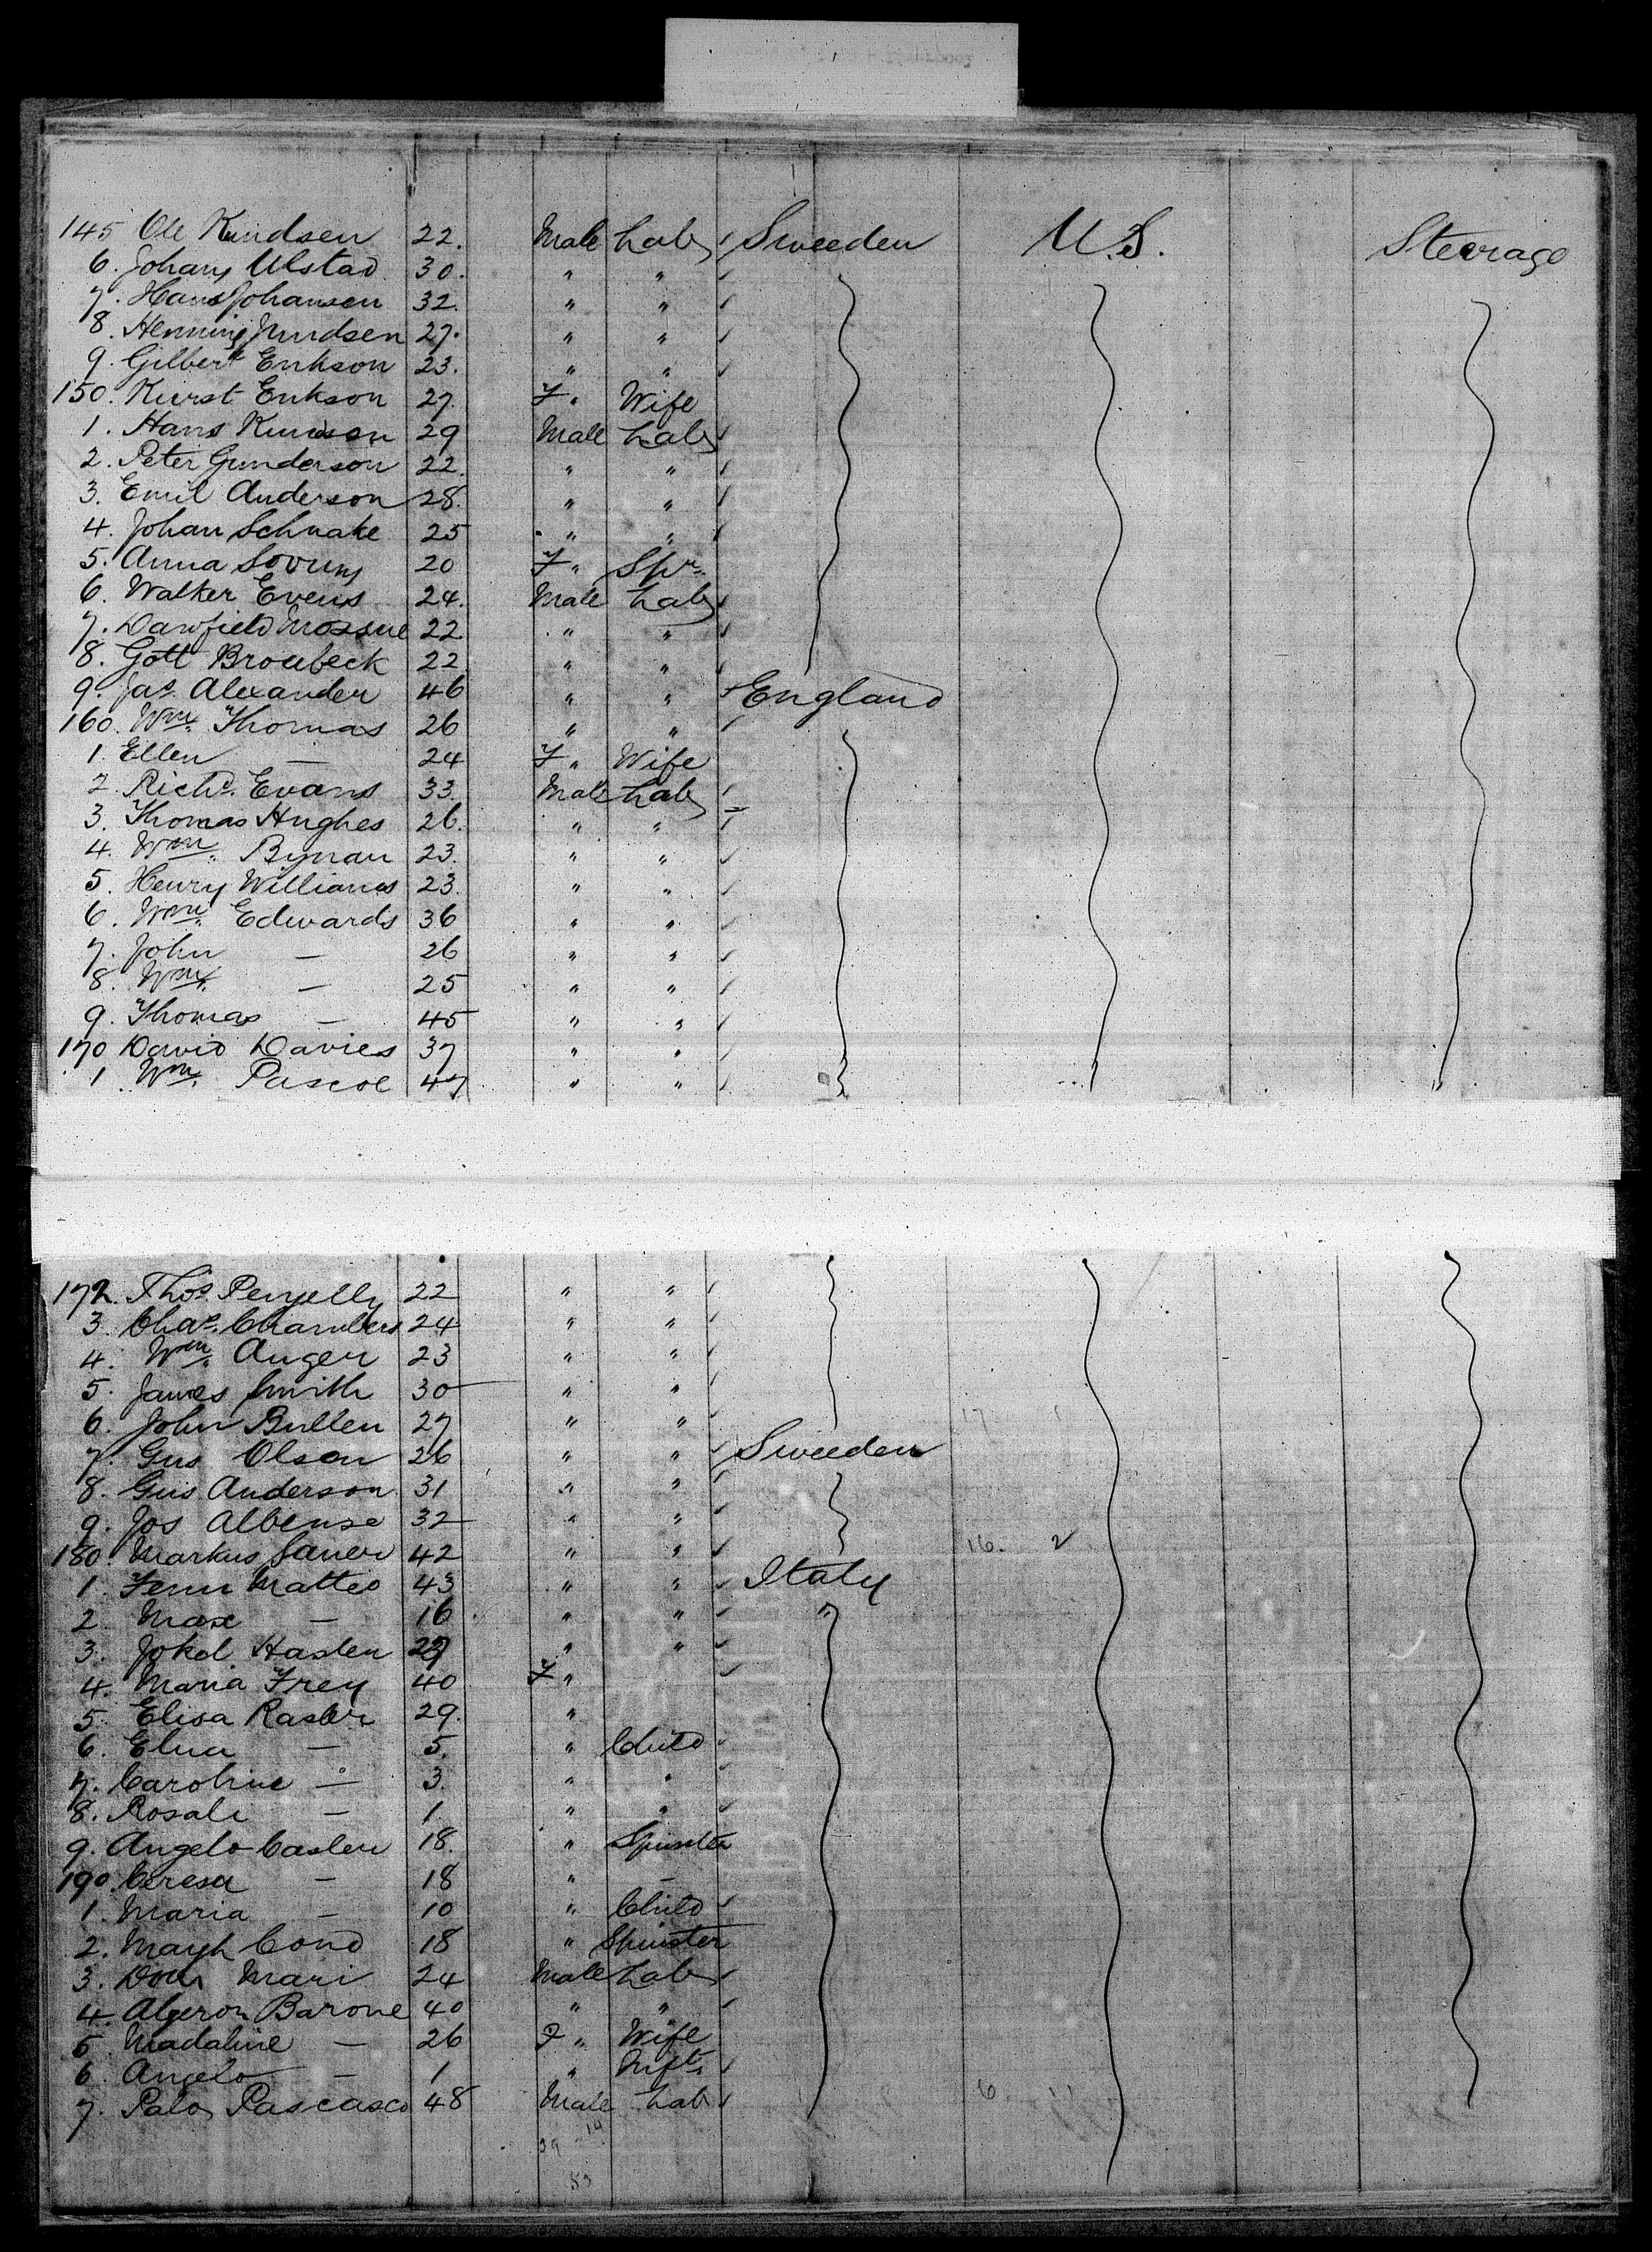 145 Ole Knudsen 22. Male Labr Sweeden U.S. Steerage
6. Johany Ulstad 30. " "
7. Hans Johansen 32. " "
8. Henning 27. " "
9. Gilbert Erikson 23. " "
150. Kurst Erikson 27. F. Wife
1. Hans Knudson 29 Male Labr
2. Peter Gunderson 22. " "
3. Emil Anderson 28. " "
4. Johan Schnake 25 " "
5. Anna 20 F " Spr.
6. Walker Evens 24. Male Labr
7. 22. " "
8. Gott Broubeck 22 " "
9. Jas. Alexander 46 " " England
160. Wm. Thomas 26 " "
1. Ellen — 24 F " Wife
2. Richd. Evans 33. Male Labr
3. Thomas Hughes 26. " "
4. Wm. Bynan 23. " "
5. Henry Williams 23. " "
6. Wm. Edwards 36 " "
7. John — 26 " "
8. Wm. — 25 " "
9. Thomas — 45 " "
170 David Davies 37 " "
1 Wm. Pascoe 47 " "
172. Thos. Pengelly 22 " "
3. Chas. Chambers 24 " "
4. Wm. Auger 23 " "
5. James Smith 30 " "
6. John Bullen 27 " "
7. Gus Olson 26 " " Sweeden
8. Gus Anderson 31 " "
9. Jos Albense 32 " "
180. Markus 42 " " 16. 2
1. Matteo 43 " " Italy
2. Max — 16 " " "
3. Jokol Hasler " "
4. Maria Frey 40 F "
5. Elisa Rasler 29. "
6. Elna — 5. " Child
7. Caroline — 3. " "
8. Rosali — 1. " "
9. Angelo Casler 18. " Spinster
190. Ceresa — 18 " –
1. Maria — 10 " Child
2. Mayh Cond 18 " Spinster
3. Dom Mari 24 Male Labr
4. Algeron Barone 40 " "
5 Madaline — 26 F " Wife
6. Angelo — 1 " Inft.
7. Palo Pascasco 48 Male Labr 6. 11